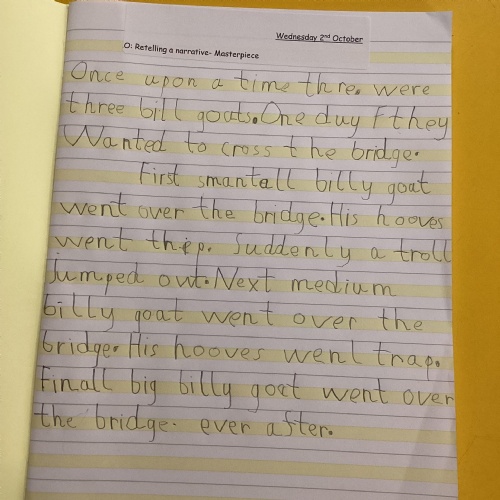 Wednesday 2nd October
O: Retelling a narrative- Masterpiece
Once upon a time thre. were
three bill goats. One duy F they
Wanted to cross the bridge.
First smantall billy goat
went over the bridge. His hooves
went thip. Suddenly a troll
Jumped out. Next medium
billy goat went over the
bridge. His hooves went trap.
Finall big billy goat went over
the bridge. ever after.